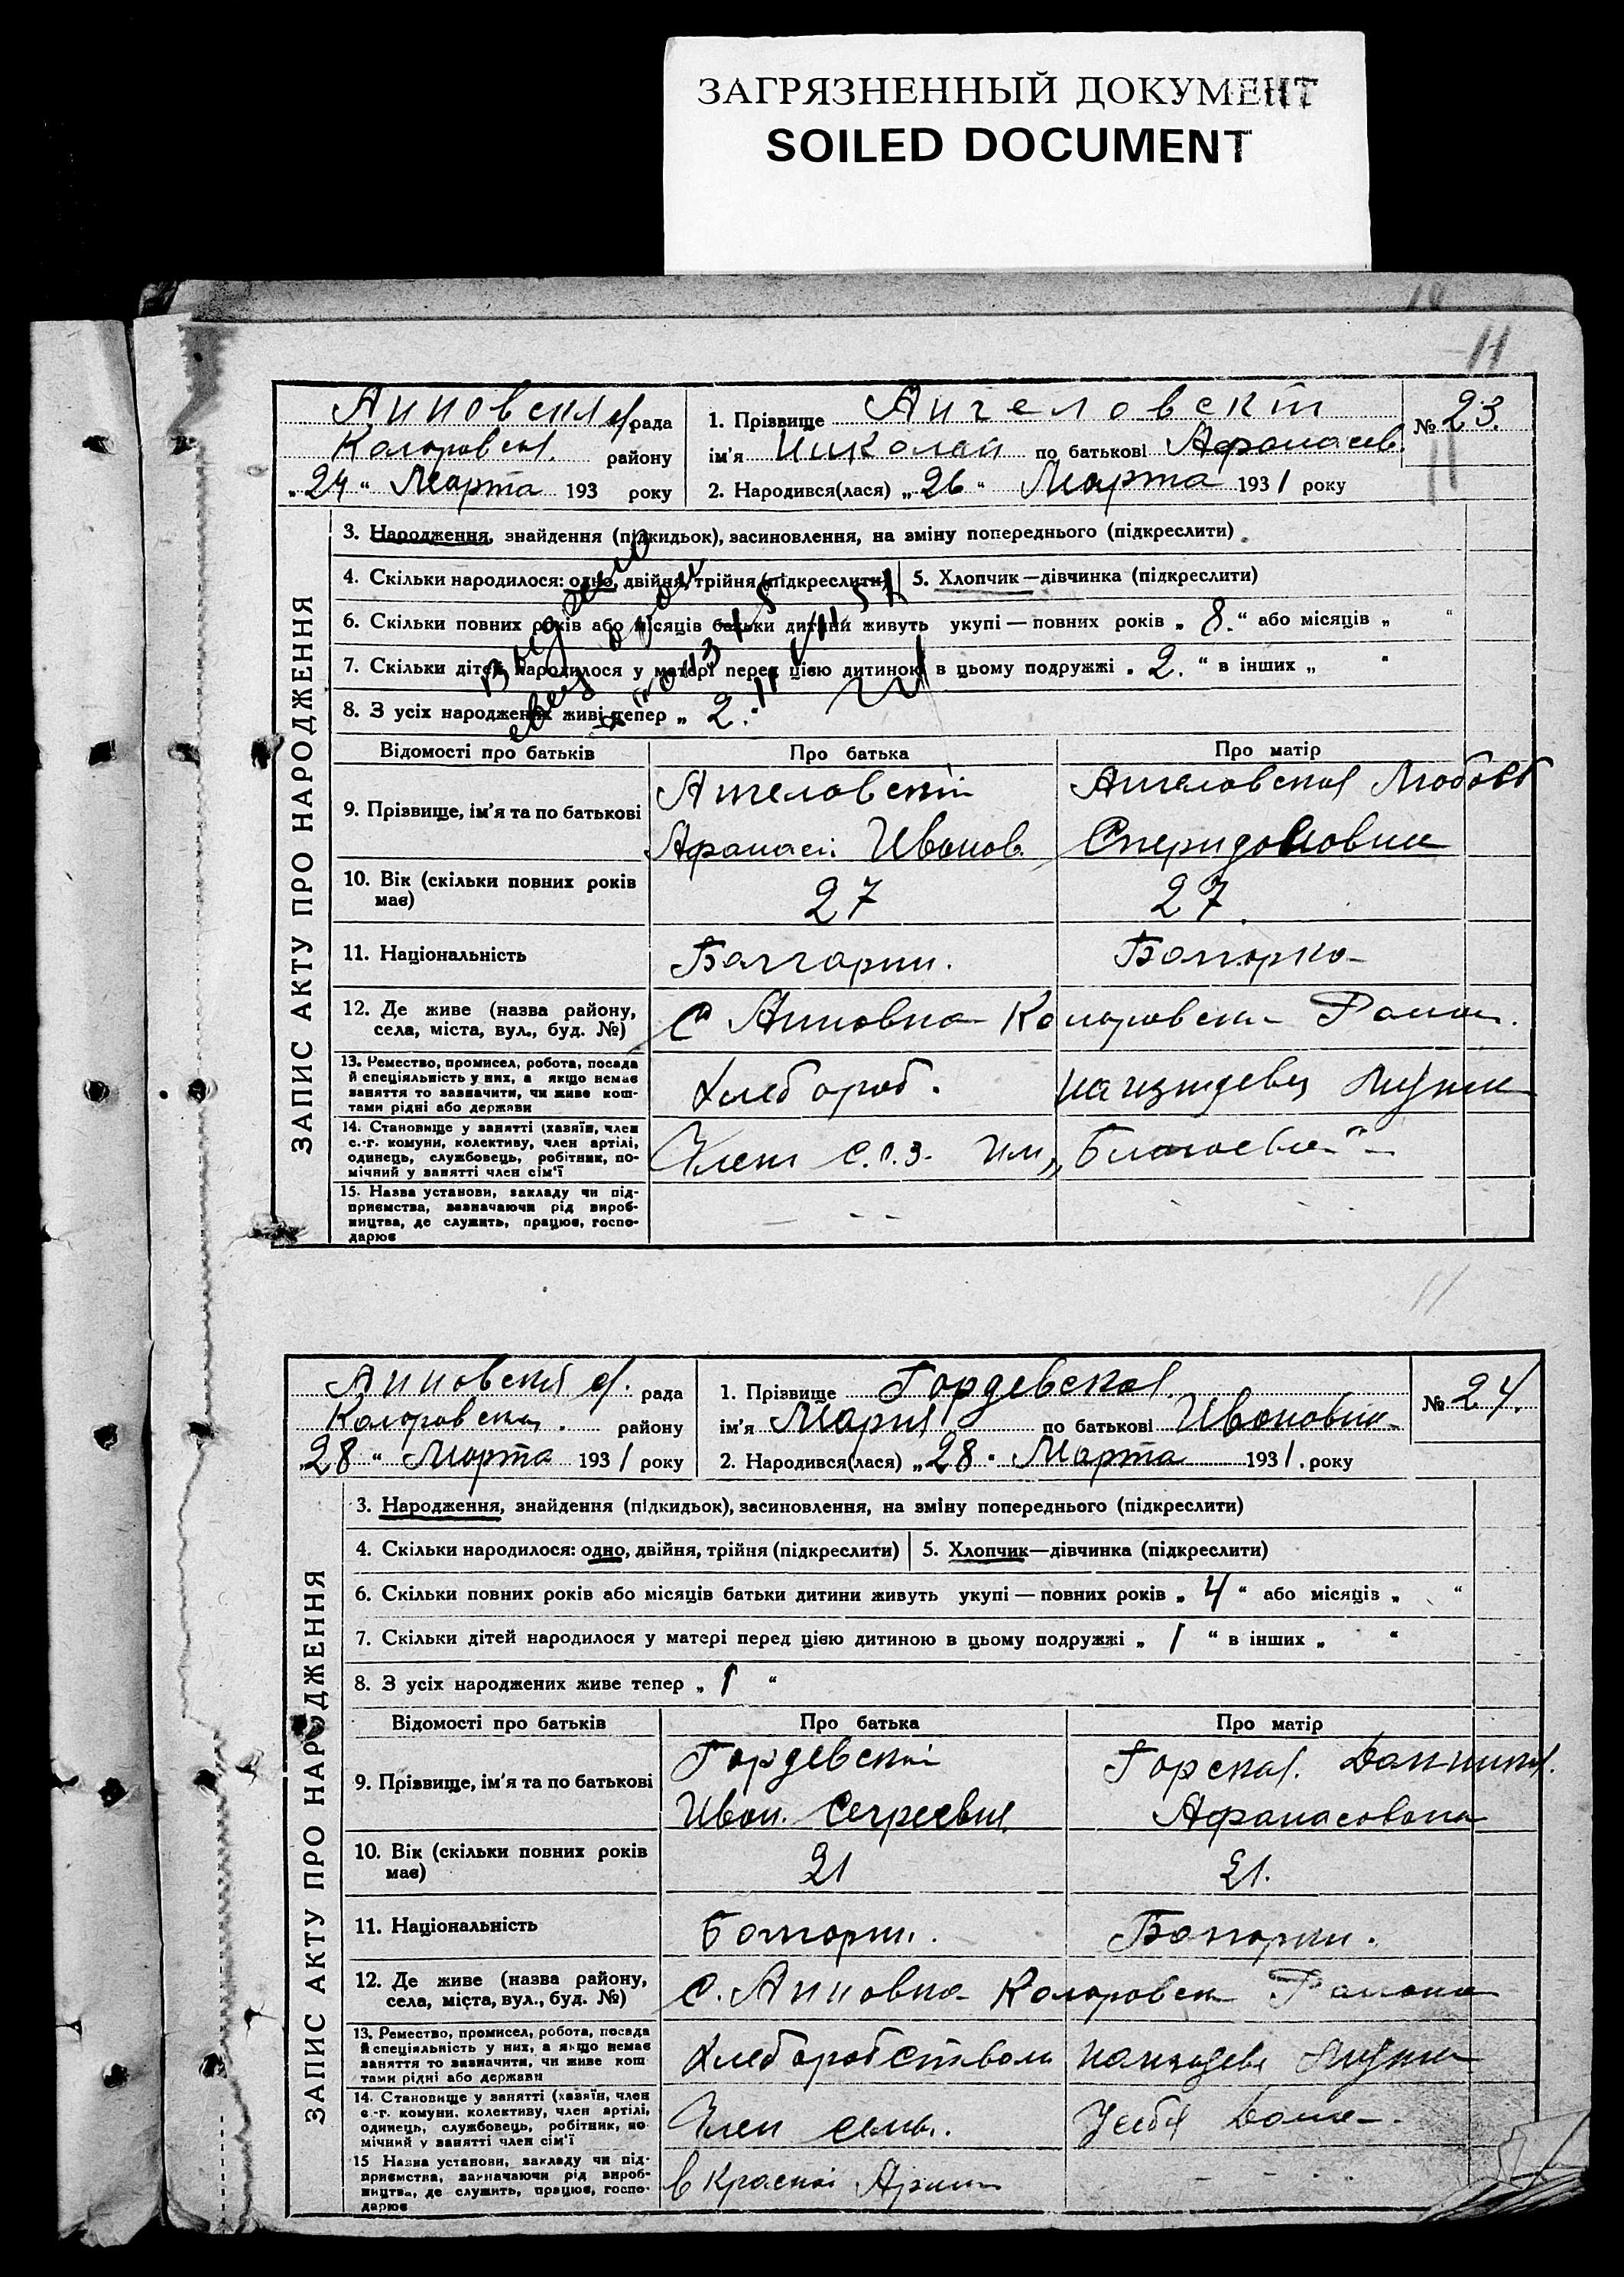 ЗАГРЯЗНЕННЫЙ ДОКУМЕНТ
SOILED DOCUMENT
11
Анновская рада
Коларовск. району
„24“ Марта 193 року
1. Прізвище Ангеловскій
ім'я Николай по батькові Афанасев.
2. Народився(лася) „26“ Марта 1931 року
№ 23.
11
ЗАПИС АКТУ ПРО НАРОДЖЕННЯ
3. Народження, знайдення (підкидьок), засиновлення, на зміну попереднього (підкреслити)
4. Скільки народилося: одно, двійня, трійня (підкреслити)
5. Хлопчик—дівчинка (підкреслити)
6. Скільки повних років або місяців батьки дитини живуть укупі — повних років „8.“ або місяців „ “
7. Скільки дітей народилося у матері перед цією дитиною в цьому подружжі „2.“ в інших „ “
8. З усіх народжених живі тепер „2.“
Відомості про батьків
Про батька
Про матір
9. Прізвище, ім'я та по батькові
Ангеловскій
Афанасі Иванов.
Ангеловская Любовь
Спиридоновна
10. Вік (скільки повних років має)
27
27.
11. Національність
Болгарин.
Болгарка
12. Де живе (назва району, села, міста, вул., буд. №)
С Анновка Коларовск. Район.
13. Ремество, промисел, робота, посада й спеціяльність у них, а якщо немає заняття то зазначити, чи живе коштами рідні або держави
Хлебороб.
на иждевен Мужа
14. Становище у занятті (хазяїн, член с.-г. комуни, колективу, член артілі, одинець, службовець, робітник, помічний у занятті член сім'ї
Член с.о.з. Им „Благоева“
15. Назва установи, закладу чи підприємства, зазначаючи рід виробництва, де служить, працює, господарює
11
Анновская рада
Коларовская. району
28“ Марта 1931 року
1. Прізвище Гордевская.
ім'я Мария по батькові Ивановна
2. Народився(лася) „28“ Марта 1931. року
№ 24.
ЗАПИС АКТУ ПРО НАРОДЖЕННЯ
3. Народження, знайдення (підкидьок), засиновлення, на зміну попереднього (підкреслити)
4. Скільки народилося: одно, двійня, трійня (підкреслити)
5. Хлопчик—дівчинка (підкреслити)
6. Скільки повних років або місяців батьки дитини живуть укупі — повних років „4“ або місяців „ “
7. Скільки дітей народилося у матері перед цією дитиною в цьому подружжі „1“ в інших „ “
8. З усіх народжених живе тепер „1“
Відомості про батьків
Про батька
Про матір
9. Прізвище, ім'я та по батькові
Гордевскій
Иван. Сегреевич.
Горская.
Афанасовона
10. Вік (скільки повних років має)
21
21.
11. Національність
Болгарин.
Болгарин.
12. Де живе (назва району, села, міста, вул., буд. №)
С. Анновка Коларовск Района
13. Ремество, промисел, робота, посада й спеціяльність у них, а якщо немає заняття то зазначити, чи живе коштами рідні або держави
Хлеборобством
на иждеве Мужа
14. Становище у занятті (хазяїн, член с.-г. комуни, колективу, член артілі, одинець, службовець, робітник, помічний у занятті член сім'ї
Член семи.
У себя Дома.
15 Назва установи, закладу чи підприємства, зазначаючи рід виробництва, де служить, працює, господарює
в Красной Армии